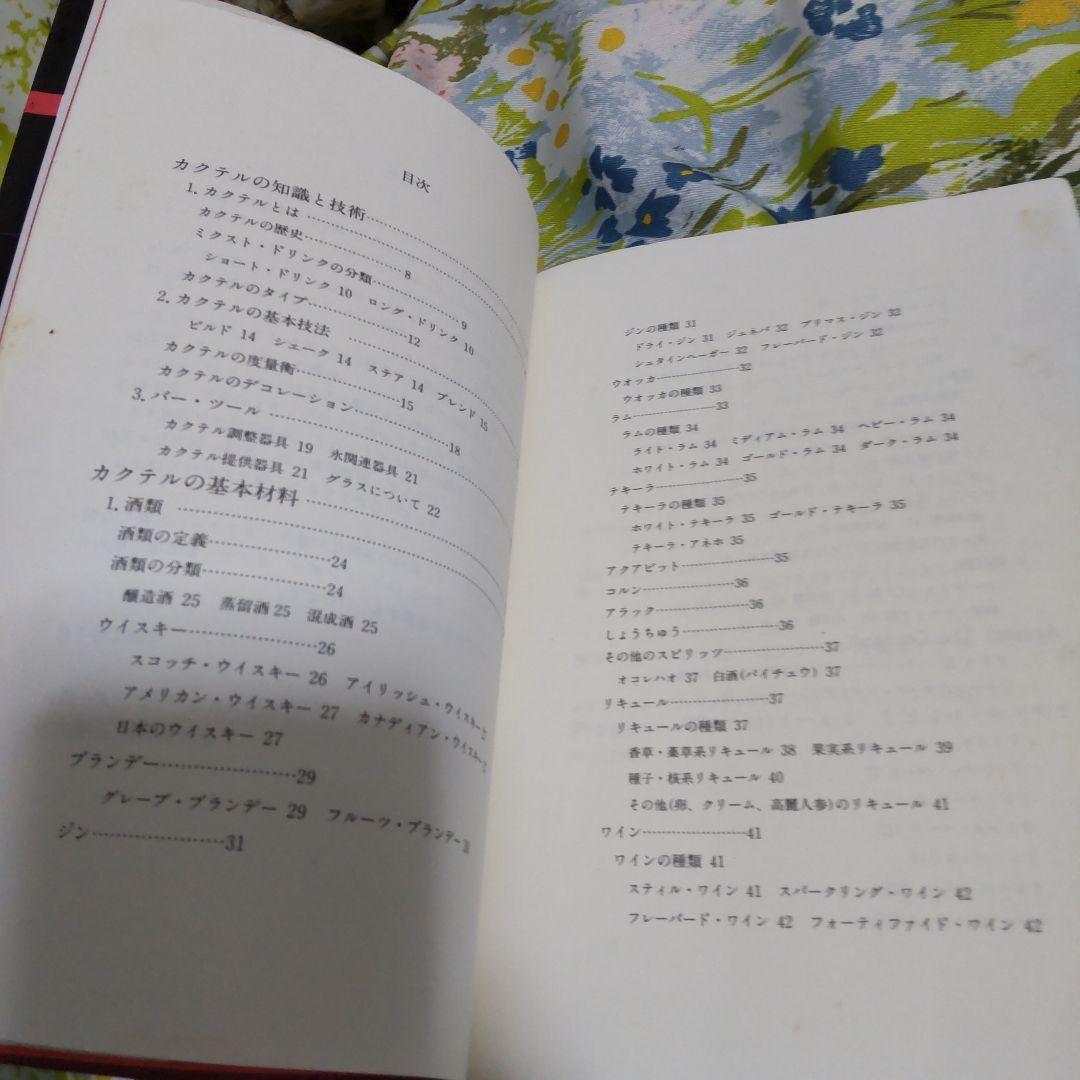 目次
カクテルの知識と技術……………
1. カクテルとは ……………
カクテルの歴史……………8
ミクスト・ドリンクの分類……………9
ショート・ドリンク 10 ロング・ドリンク 10
カクテルのタイプ……………12
2. カクテルの基本技法 ……………
ビルド 14 シェーク 14 ステア 14 ブレンド 15
カクテルの度量衡……………15
カクテルのデコレーション……………18
3. バー・ツール ……………
カクテル調整器具 19 氷関連器具 21
カクテル提供器具 21 グラスについて 22
カクテルの基本材料……………
1. 酒類 ……………
酒類の定義……………24
酒類の分類……………24
醸造酒 25 蒸留酒 25 混成酒 25
ウイスキー……………26
スコッチ・ウイスキー 26 アイリッシュ・ウイスキー
アメリカン・ウイスキー 27 カナディアン・ウイスキー
日本のウイスキー 27
ブランデー……………29
グレープ・ブランデー 29 フルーツ・ブランデー
ジン……………31
ジンの種類 31
ドライ・ジン 31 ジェネバ 32 プリマス・ジン 32
シュタインヘーガー 32 フレーバード・ジン 32
ウオッカ……………32
ウオッカの種類 33
ラム……………33
ラムの種類 34
ライト・ラム 34 ミディアム・ラム 34 ヘビー・ラム 34
ホワイト・ラム 34 ゴールド・ラム 34 ダーク・ラム 34
テキーラ……………35
テキーラの種類 35
ホワイト・テキーラ 35 ゴールド・テキーラ 35
テキーラ・アネホ 35
アクアビット……………35
コルン……………36
アラック……………36
しょうちゅう……………36
その他のスピリッツ……………37
オコレハオ 37 白酒(パイチュウ) 37
リキュール……………37
リキュールの種類 37
香草・薬草系リキュール 38 果実系リキュール 39
種子・核系リキュール 40
その他(卵、クリーム、高麗人参)のリキュール 41
ワイン……………41
ワインの種類 41
スティル・ワイン 41 スパークリング・ワイン 42
フレーバード・ワイン 42 フォーティファイド・ワイン 42